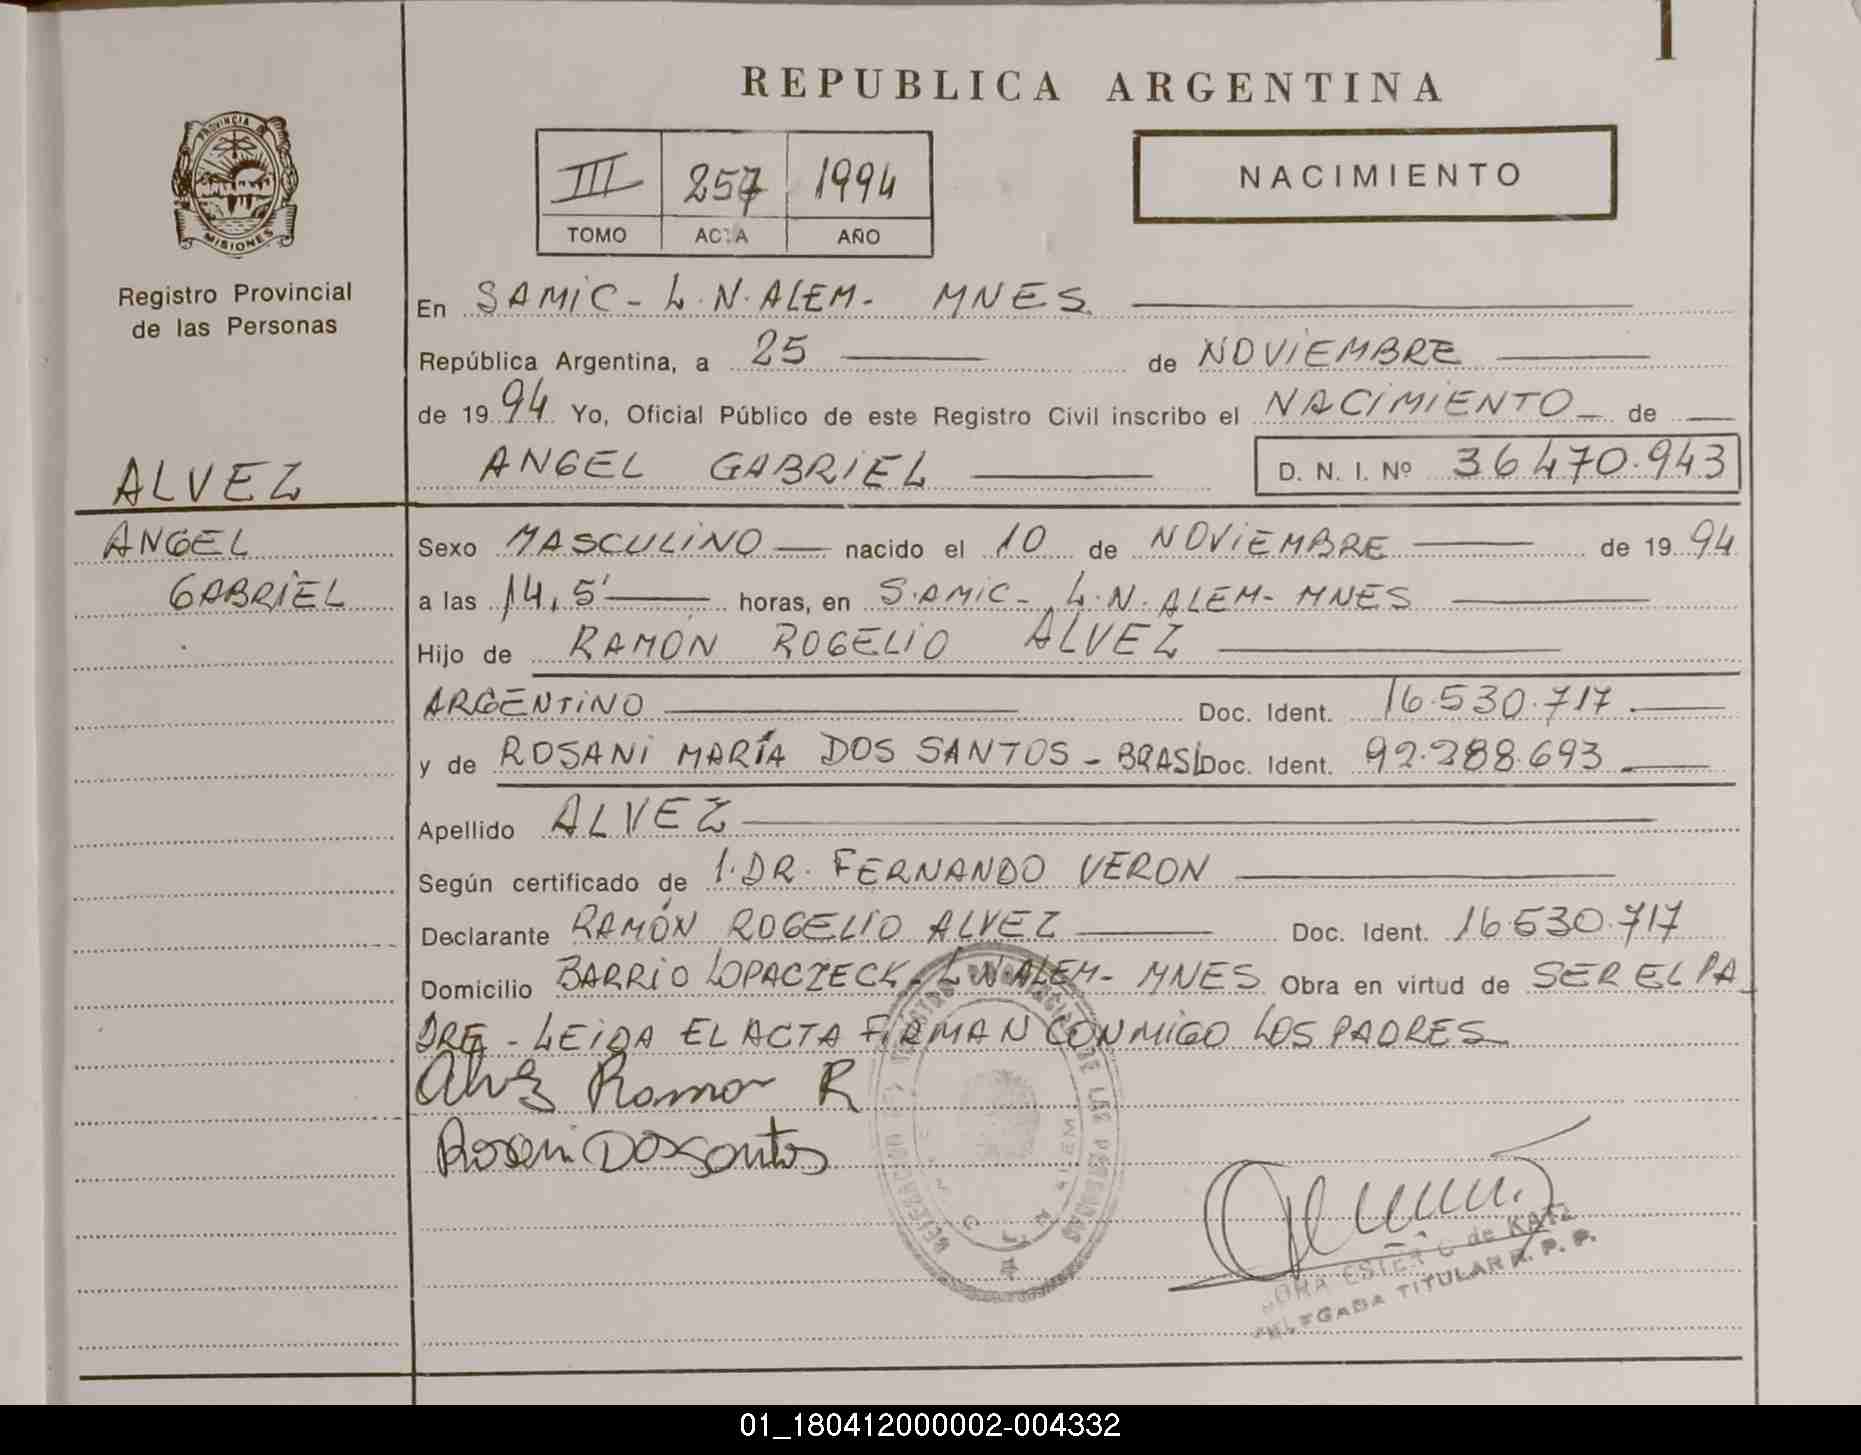 REPUBLICA ARGENTINA
PROVINCIA DE
MISIONES
Registro Provincial
de las Personas
III 257 1994
TOMO ACTA AÑO
NACIMIENTO
En SAMIC - L.N. ALEM - MNES
República Argentina, a 25 de NOVIEMBRE
de 1994 Yo, Oficial Público de este Registro Civil inscribo el NACIMIENTO de
ALVEZ
ANGEL GABRIEL D. N. I. Nº 36470.943
ANGEL
GABRIEL
Sexo MASCULINO nacido el 10 de NOVIEMBRE de 1994
a las 14,5' horas, en SAMIC - L.N. ALEM - MNES
Hijo de RAMÓN ROGELIO ALVEZ
ARGENTINO Doc. Ident. 16.530.717
y de ROSANI MARÍA DOS SANTOS - BRASI Doc. Ident. 92.288.693
Apellido ALVEZ
Según certificado de 1. DR. FERNANDO VERON
Declarante RAMÓN ROGELIO ALVEZ Doc. Ident. 16530.717
Domicilio BARRIO LOPACZECK - L.N. ALEM - MNES Obra en virtud de SER EL PA_
DRE - LEIDA EL ACTA FIRMAN CONMIGO LOS PADRES
Alvez Ramon R
Rosani Dos Santos
DE LAS PERSONAS
ESTER C de KATZ
DELEGADA TITULAR R. P. P.
01_180412000002-004332